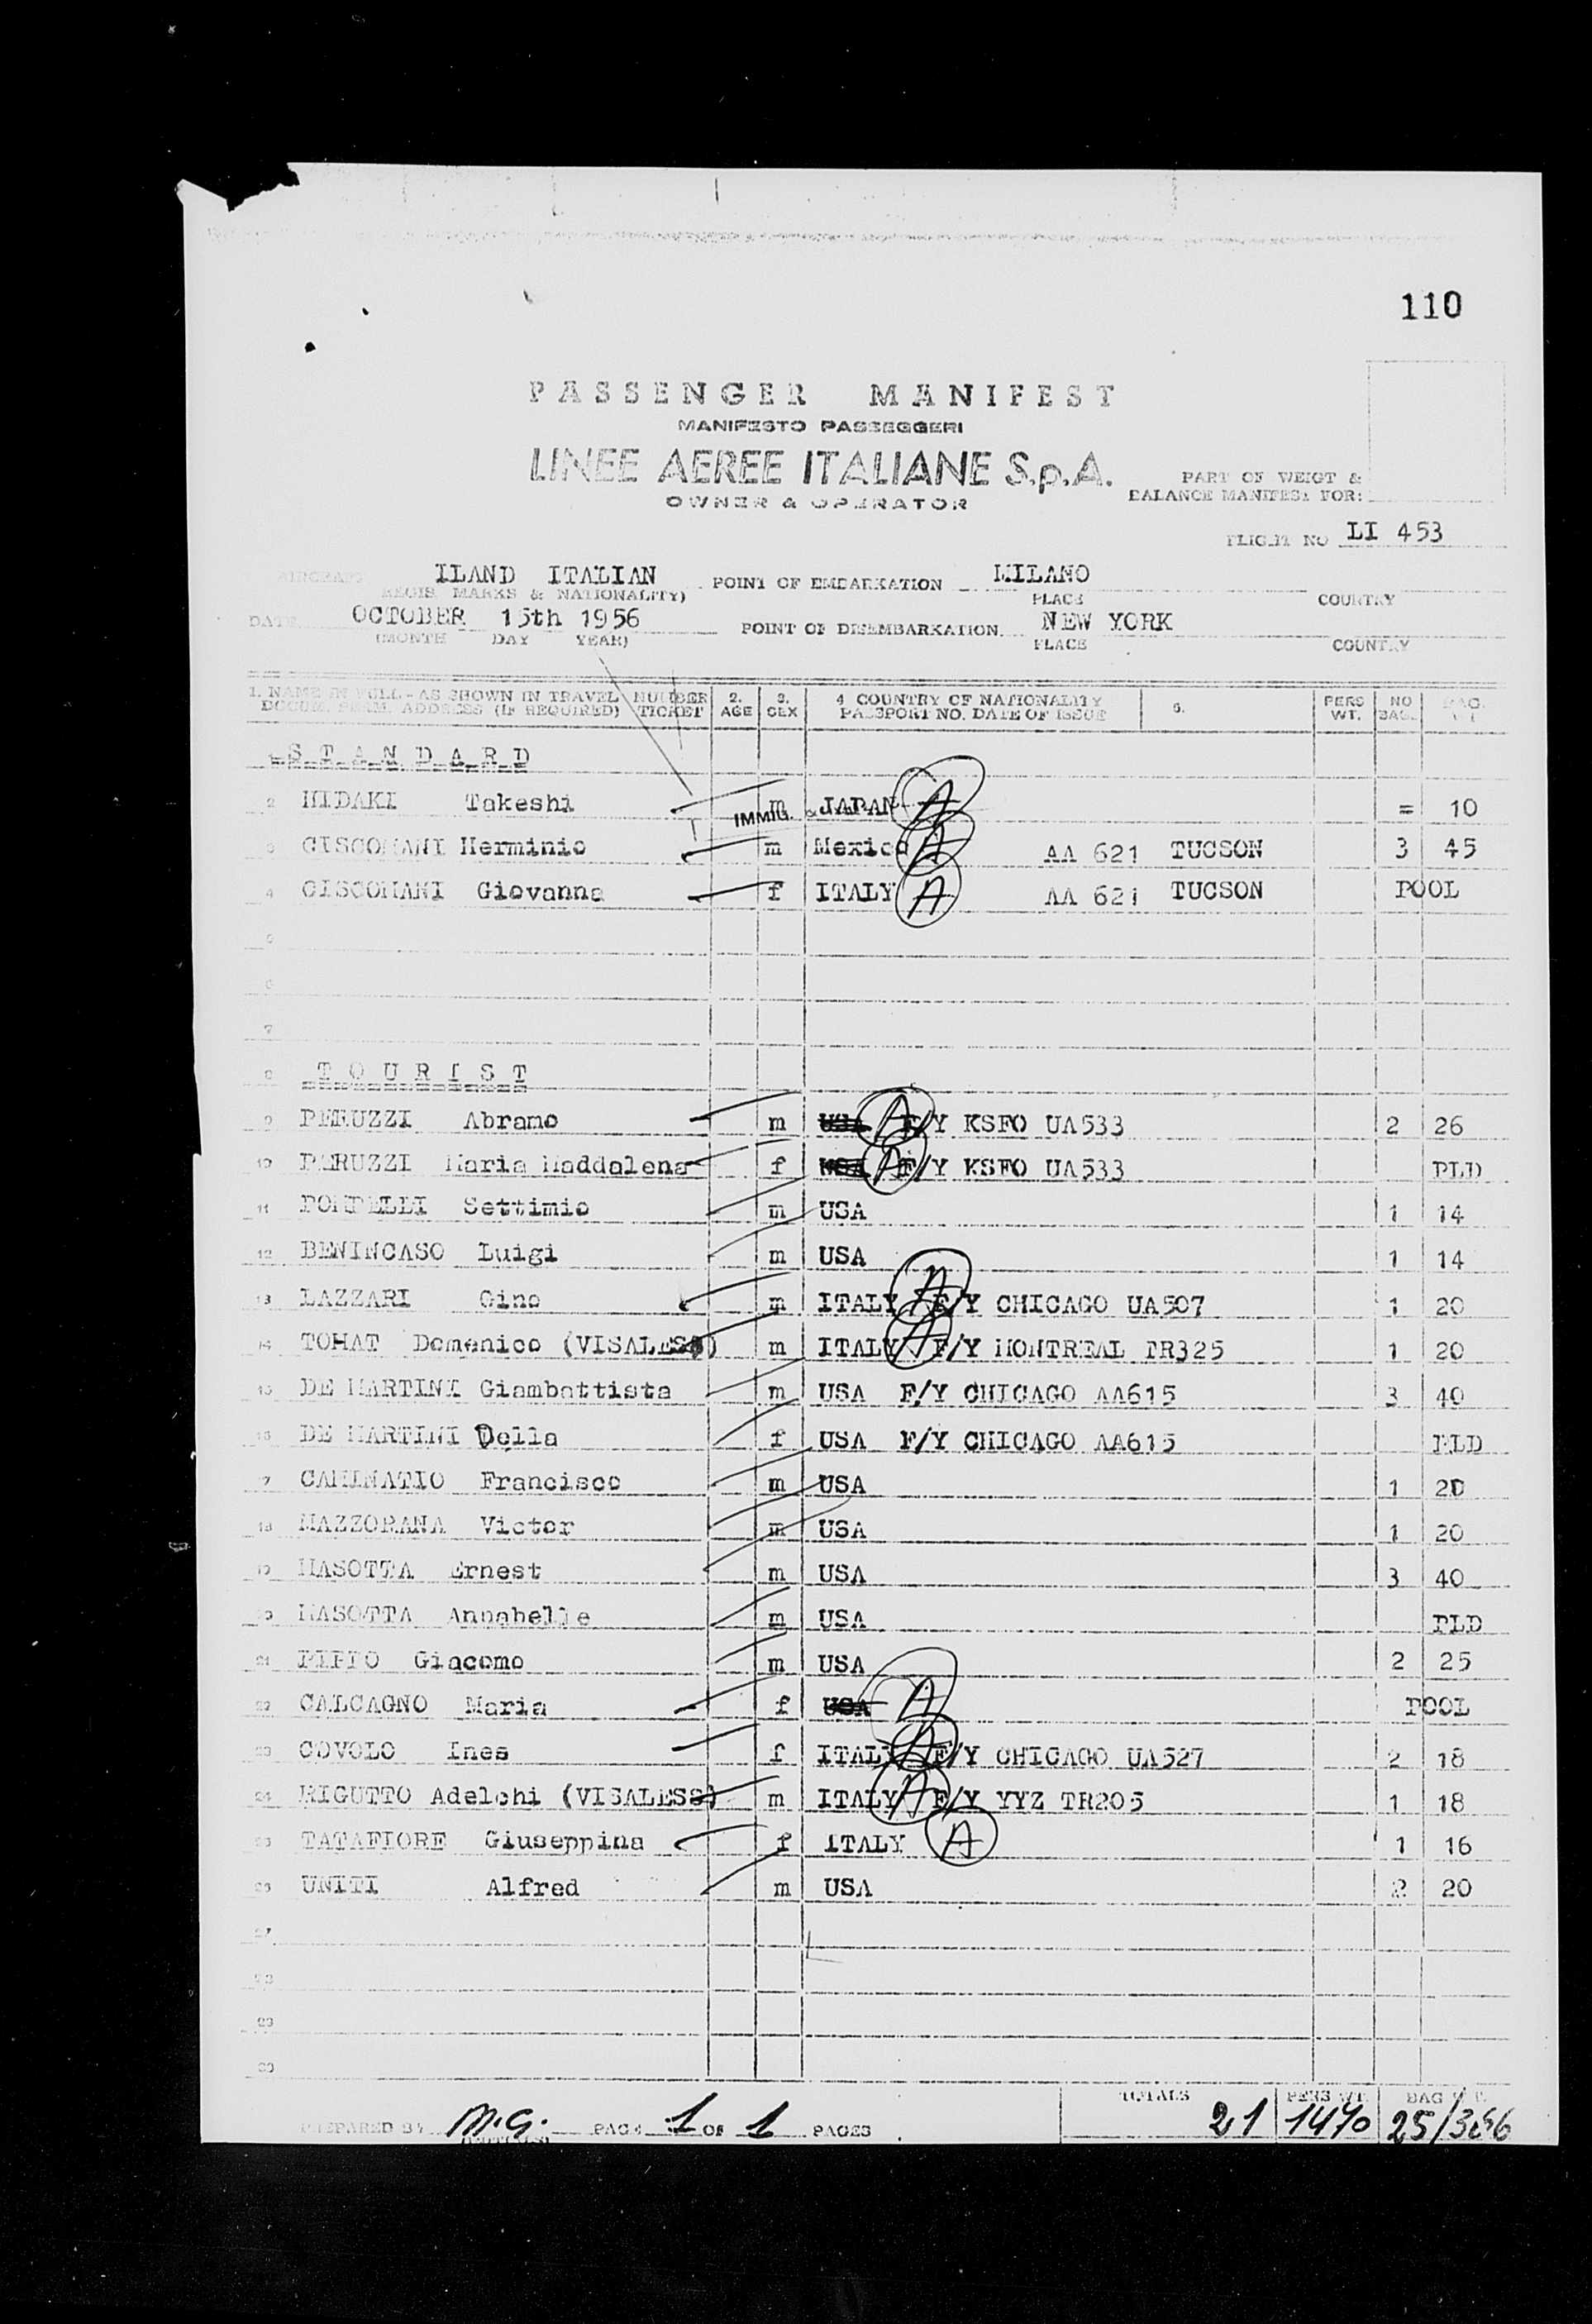 110
PASSENGER MANIFEST
MANIFESTO PASSEGGERI
LINEE AEREE ITALIANE S.p.A.
OWNER & OPERATOR
PART OF WEIGT &
BALANCE MANIFEST FOR:
FLIGHT NO LI 453
AIRCRAFT ILAND ITALIAN POINT OF EMBARKATION MILANO
(REGIS. MARKS & NATIONALITY) PLACE COUNTRY
DATE OCTOBER 15th 1956 POINT OF DISEMBARKATION NEW YORK
(MONTH DAY YEAR) PLACE COUNTRY
1. NAME IN FULL - AS SHOWN IN TRAVEL NUMBER 2. 3. 4. COUNTRY OF NATIONALITY 5. PERS NO BAG.
DOCUM. PERM. ADDRESS (IF REQUIRED) TICKET AGE SEX PASSPORT NO. DATE OF ISSUE WT. BAG. WT
1 STANDARD
2 HIDAKI Takeshi m JAPAN A = 10
IMMIG. &
3 GISCOMANI Herminio m Mexico A AA 621 TUCSON 3 45
4 GISCOMANI Giovanna f ITALY A AA 621 TUCSON POOL
5
6
7
8 TOURIST
9 PERUZZI Abramo m USA A F/Y KSFO UA533 2 26
10 PERUZZI Maria Maddalena f USA A F/Y KSFO UA533 PLD
11 Settimio m USA 1 14
12 BENINCASO Luigi m USA 1 14
13 LAZZARI Gino m ITALY A F/Y CHICAGO UA507 1 20
14 TOMAT Domenico (VISALESS) m ITALY A F/Y MONTREAL TR325 1 20
15 DE MARTINI Giambattista m USA F/Y CHICAGO AA615 3 40
16 DE MARTINI Della f USA F/Y CHICAGO AA615 PLD
17 CAMINATIO Francisco m USA 1 20
18 MAZZORANA Victor m USA 1 20
19 MASOTTA Ernest m USA 3 40
20 MASOTTA Annabelle m USA PLD
21 Giacomo m USA 2 25
22 CALCAGNO Maria f USA A POOL
23 COVOLO Ines f ITALY A F/Y CHICAGO UA527 2 18
24 RIGUTTO Adelchi (VISALESS) m ITALY A F/Y YYZ TR205 1 18
25 TATAFIORE Giuseppina f ITALY A 1 16
26 UNITI Alfred m USA 2 20
27
28
29
30
TOTALS PERS WT. BAG WT.
PREPARED BY M.G. PAGE 1 OF 1 PAGES 21 1470 25/366
(INITIALS)